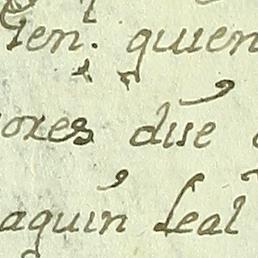 ten. quien
ores dūe
aquin Leal